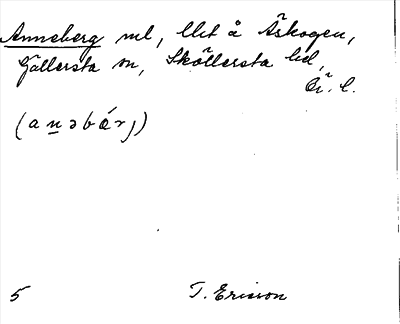 Anneberg ml, llst å Åskogen,
Gällersta sn, Sköllersta hd,
Ör. l.
(anəbærj)
5 T. Ericson